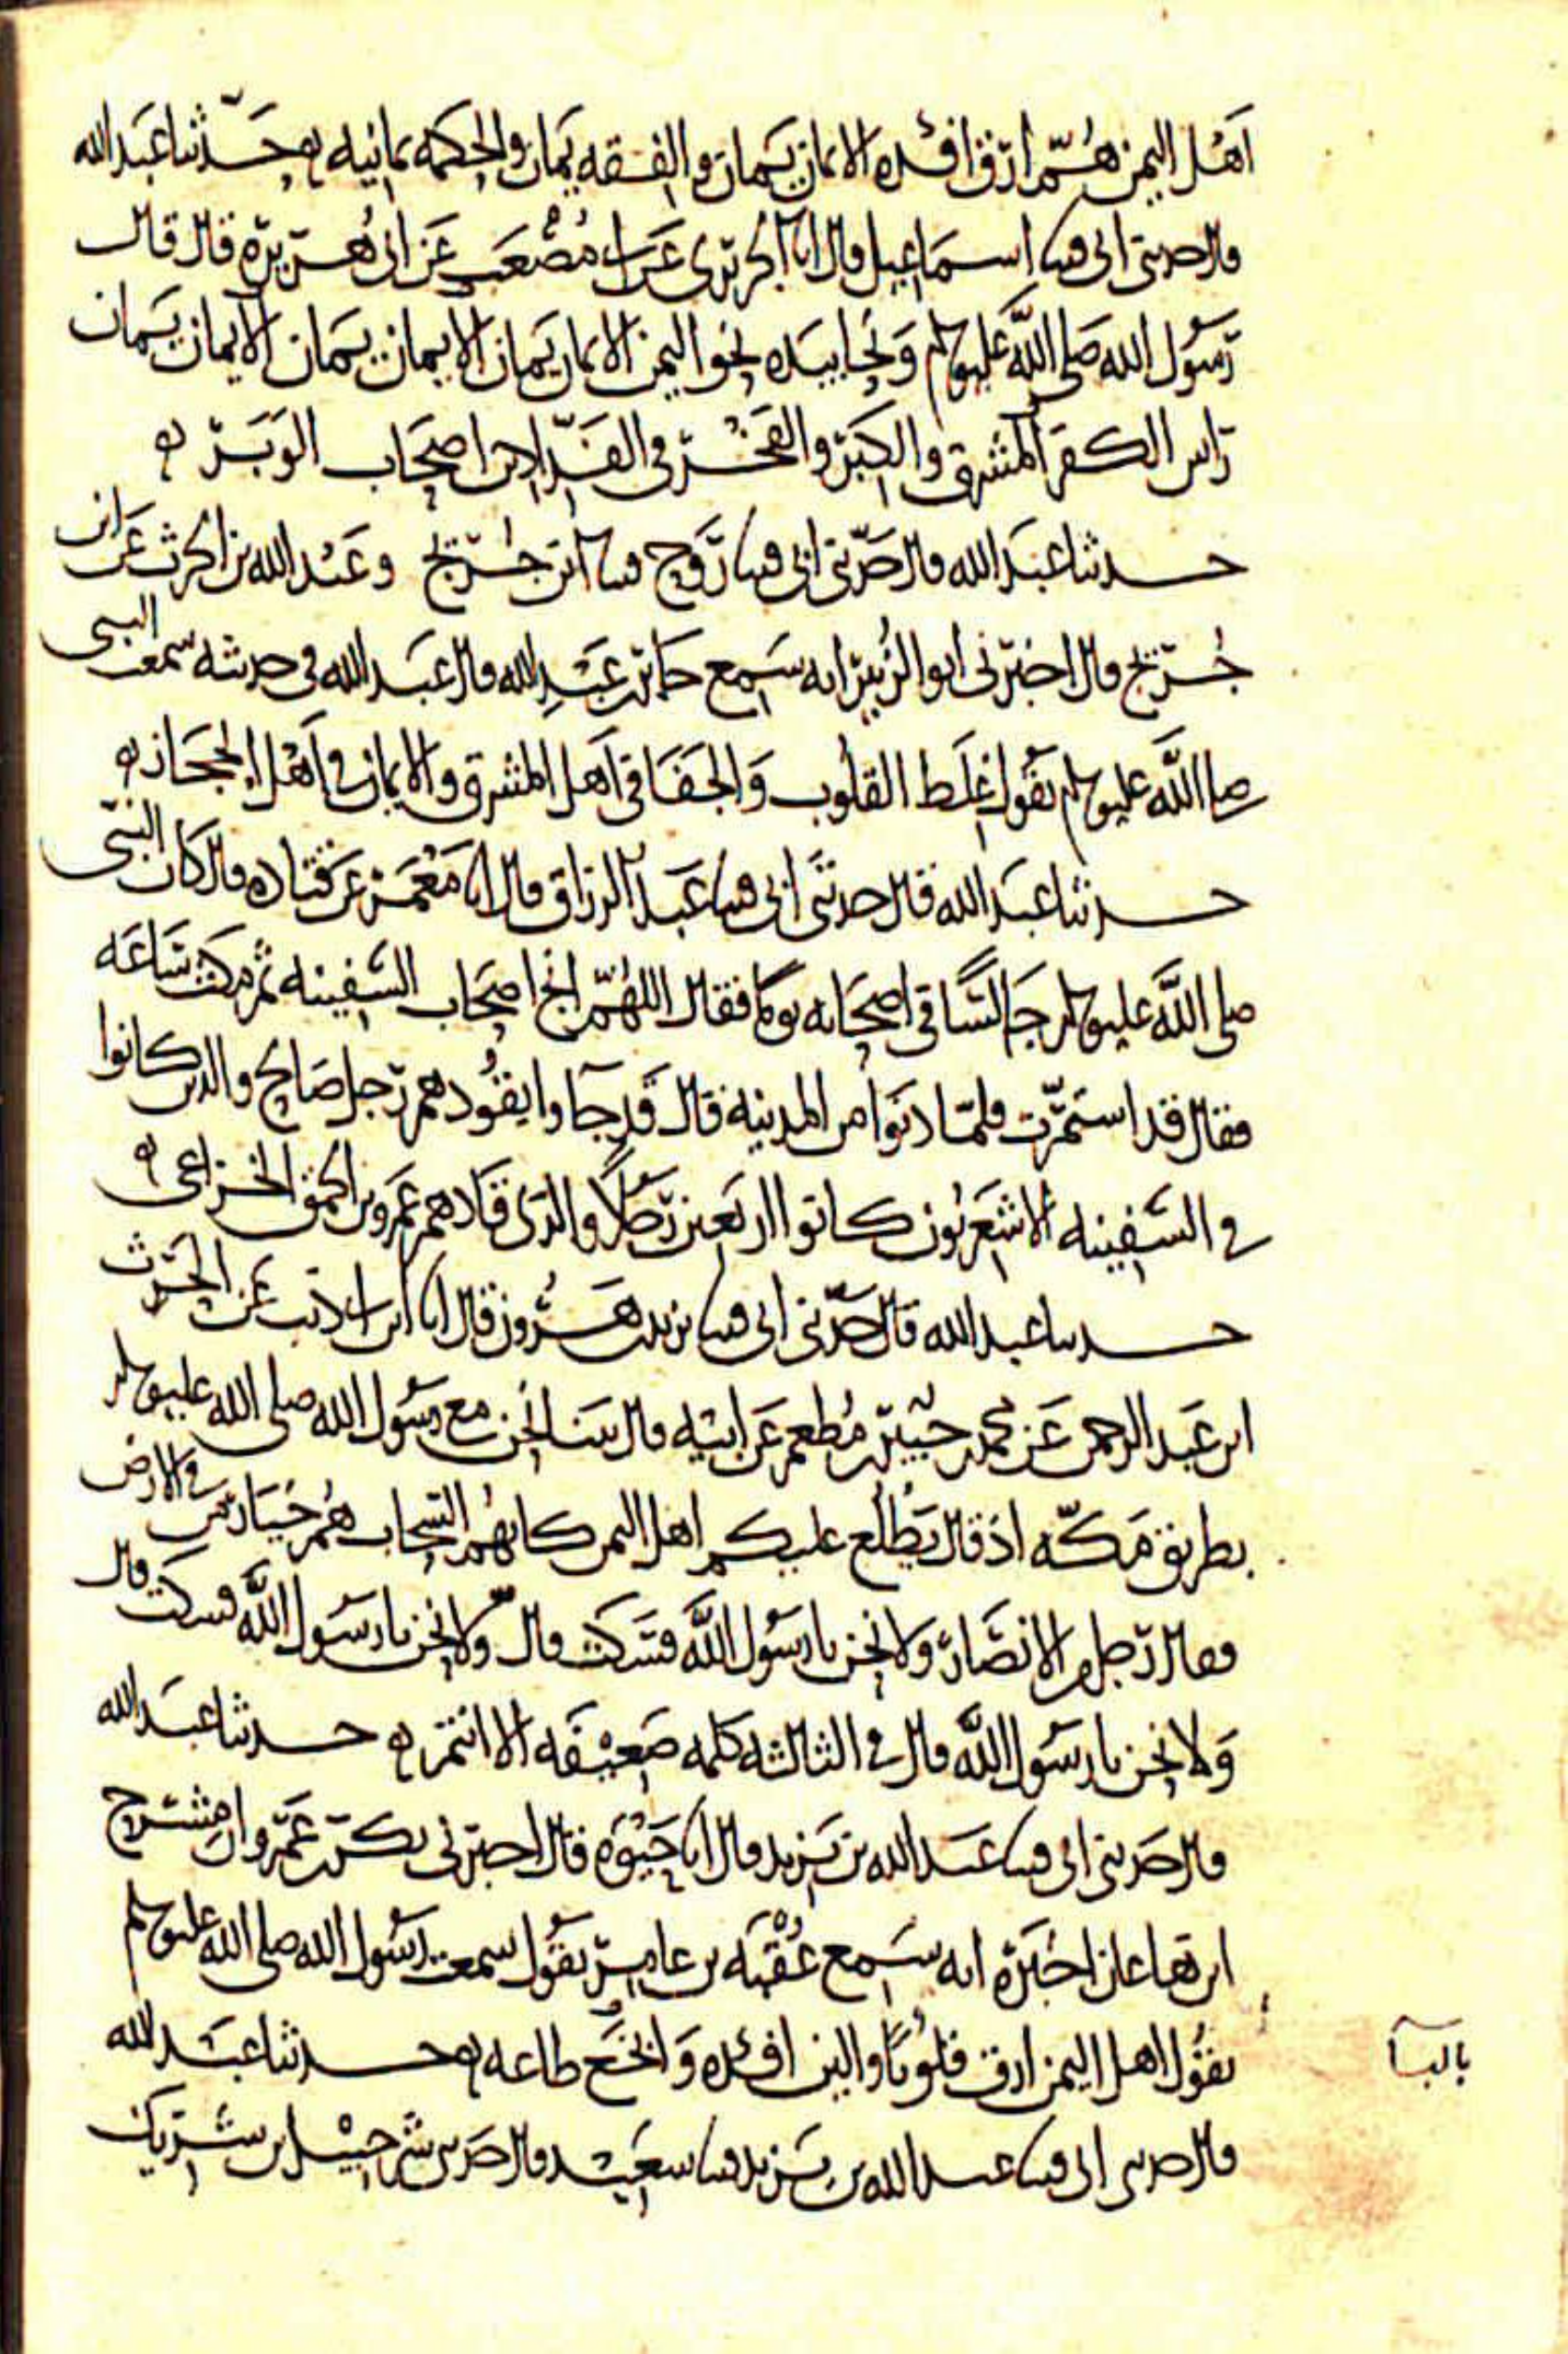 اهل اليمن هم ارق افئده الايمان يمان والفقه يمان والحكمه يمانيه حدثنا عبد الله
قال حدثني ابي قثنا اسماعيل قال انا الجريري عن ابي مصعب عن ابي هريرة قال قال
رسول الله صلى الله عليه وسلم ونحا بيده نحو اليمن الايمان يمان الايمان يمان الايمان يمان
راس الكفر المشرق والكبر والفخر في الفدادين اصحاب الوبر
حدثنا عبد الله قال حدثني ابي قثنا روح قثنا ابن جريج وعبد الله بن الحرث عن ابن
جريج قال اخبرني ابو الزبير انه سمع جابر بن عبد الله قال عبد الله في حديثه سمعت النبي
صلى الله عليه وسلم يقول غلظ القلوب والجفا في اهل المشرق والايمان في اهل الحجاز
حدثنا عبد الله قال حدثني ابي قثنا عبد الرزاق قال انا معمر عن قتاده قال كان النبي
صلى الله عليه وسلم جالسا في اصحابه يوما فقال اللهم انج اصحاب السفينه ثم مكث ساعه
فقال قد استمرت فلما دنوا من المدينه قال قد جاوا يقودهم رجل صالح والذين كانوا
في السفينه الاشعريون كانوا اربعين رجلا والذي قادهم عمرو بن الحمق الخزاعي
حدثنا عبد الله قال حدثني ابي قثنا يزيد بن هرون قال انا ابن ابي ذئب عن الحرث
ابن عبد الرحمن عن محمد بن جبير بن مطعم عن ابيه قال بينا نحن مع رسول الله صلى الله عليه وسلم
بطريق مكه اذ قال يطلع عليكم اهل اليمن كانهم السحاب هم خيار من في الارض
فقال رجل من الانصار ولا نحن يا رسول الله فسكت قال ولا نحن يا رسول الله فسكت قال
ولا نحن يا رسول الله قال في الثالثه كلمه ضعيفه الا انتم حدثنا عبد الله
قال حدثني ابي قثنا عبد الله بن يزيد قال انا حيوه قال اخبرني بكر بن عمرو ان مشرح
ابن هاعان اخبره انه سمع عقبه بن عامر يقول سمعت رسول الله صلى الله عليه وسلم
يقول اهل اليمن ارق قلوبا والين افئده وانجع طاعه حدثنا عبد الله
بالبا
قال حدثني ابي قثنا عبد الله بن يزيد قثنا سعيد قال حدثني شرحبيل بن شريك